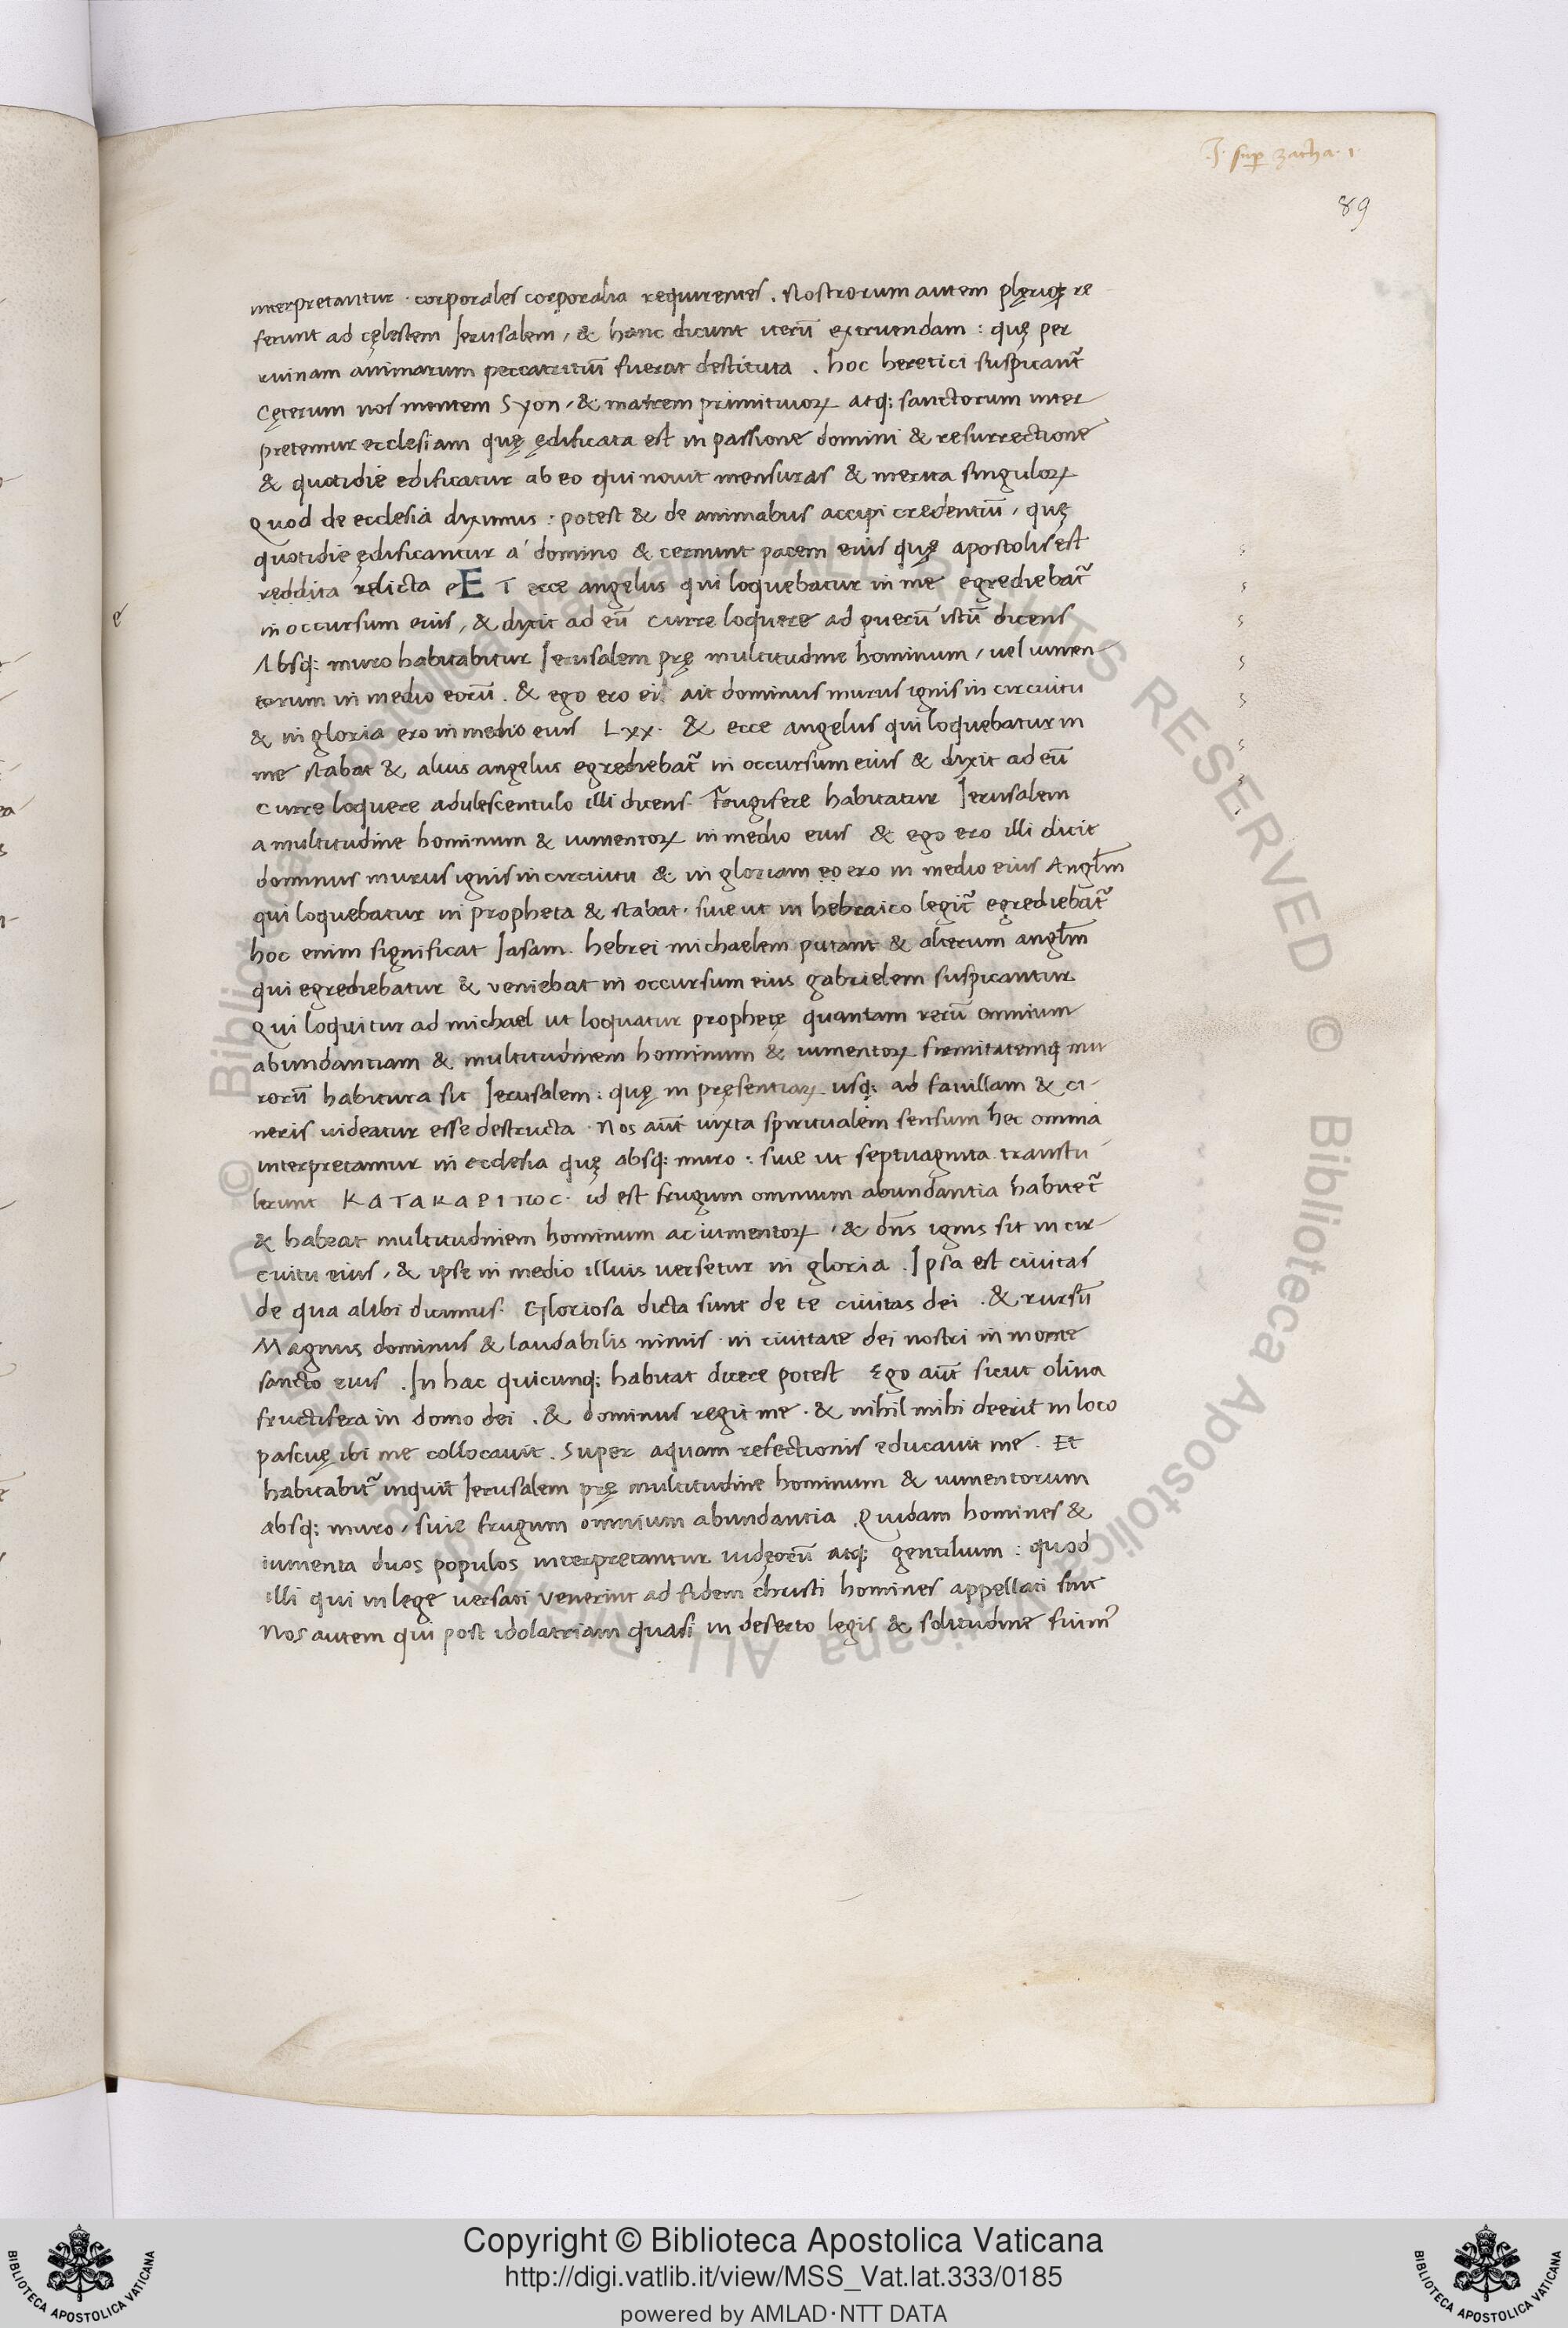 .J. sup zacha. 1.
89
interpretantur · corporales corporalia requirentes . Nostrorum autem plęriqꝫ re
ferunt ad cęlestem Ierusalem, & hanc dicunt iterū extruendam : quę per
ruinam animarum peccatricū fuerat destituta . hoc heretici suspicant᷑
Cęterum nos montem Syon, & matrem primitiuoꝝ atq; sanctorum inter
pretemur ecclesiam quę ędificata est in passione domini & resurrectione
& quotidie edificatur ab eo qui nouit mensuras & merita singuloꝝ
Quod de ecclesia diximus : potest & de animabus accipi credentiū, quę
quotidie ędificantur a domino & cernunt pacem eius quę apostolis est
reddita relicta e E T ecce angelus qui loquebatur in me egrediebat᷑
in occursum eius, & dixit ad eū curre loquere ad puerū istū dicens
Absq; muro habitabitur Ierusalem prę multitudine hominum, uel iumen
torum in medio eorū . & ego ero ei ait dominus murus ignis in circuitu
& in gloria ero in medio eius Lxx. & ecce angelus qui loquebatur in
me stabat & alius angelus egrediebat᷑ in occursum eius & dixit ad eū
curre loquere adulescentulo illi dicens. Frugifere habitatur Ierusalem
a multitudine hominum & iumentoꝝ in medio eius & ego ero illi dicit
dominus murus ignis in circuitu & in gloriam eo ero in medio eius Angl̄m
qui loquebatur in propheta & stabat. siue ut in hebraico legit᷑ egrediebat᷑
hoc enim significat Iasam. hebrei michaelem putant & alterum angl̄m
qui egrediebatur & veniebat in occursum eius gabrielem suspicantur
Qui loquitur ad michael ut loquatur prophetę quantam rerū omnium
abundantiam & multitudinem hominum & iumentoꝝ firmitatemq mu
rorū habitura sit Ierusalem : quę in pręsentiaꝝ usq; ad fauillam & ci-
neris uideatur esse destructa . Nos aūt iuxta spiritualem sensum hec omnia
interpretamur in ecclesia quę absq; muro : siue ut septuaginta transtu
lerunt ΚΑΤΑΚΑΡΠΟC. id est frugum omnium abundantia habitet᷑
& habeat multitudinem hominum ac iumentoꝝ, & dn̄s ignis sit in cir-
cuitu eius, & ipse in medio illius uersetur in gloria . Ipsa est ciuitas
de qua alibi dicimus. Gloriosa dicta sunt de te ciuitas dei . & rursū
Magnus dominus & laudabilis nimis in ciuitate dei nostri in monte
sancto eius . In hac quicunq; habitat dicere potest Ego aūt sicut oliua
fructifera in domo dei . & dominus regit me . & nihil mihi deerit in loco
pascuę ibi me collocauit . Super aquam refectionis educauit me . Et
habitabit᷑ inquit Ierusalem prę multitudine hominum & iumentorum
absq; muro, siue frugum omnium abundantia . Quidam homines &
iumenta duos populos interpretantur iudęorū atq; gentilium : quod
illi qui in lege uersati venerint ad fidem christi homines appellati sint
Nos autem qui post idolatriam quasi in deserto legis & solitudine fuim᷒
e
© Biblioteca Apostolica Vaticana ALL RIGHTS RESERVED
Copyright © Biblioteca Apostolica Vaticana
http://digi.vatlib.it/view/MSS_Vat.lat.333/0185
powered by AMLAD·NTT DATA
BIBLIOTECA APOSTOLICA VATICANA
BIBLIOTECA APOSTOLICA VATICANA